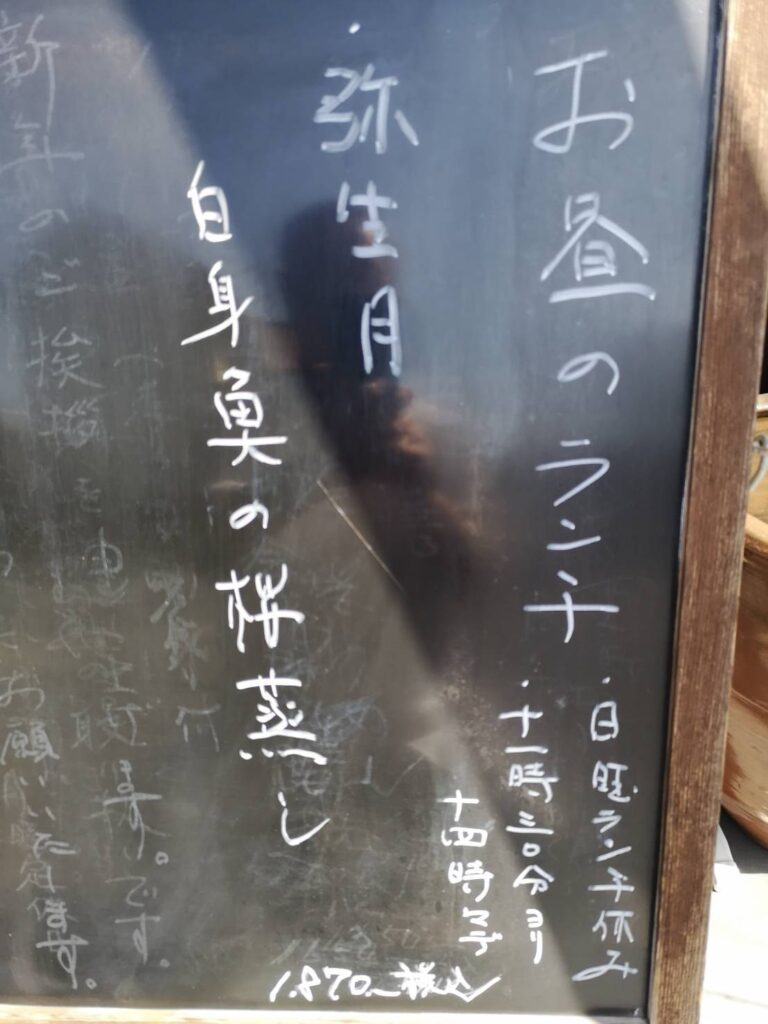 お昼のランチ
・日曜ランチ休み
・十一時三〇分ヨリ
十四時マデ
・弥生月
白身魚の桜蒸し
1,870 税込
新年のご挨拶を
お願いいたします。